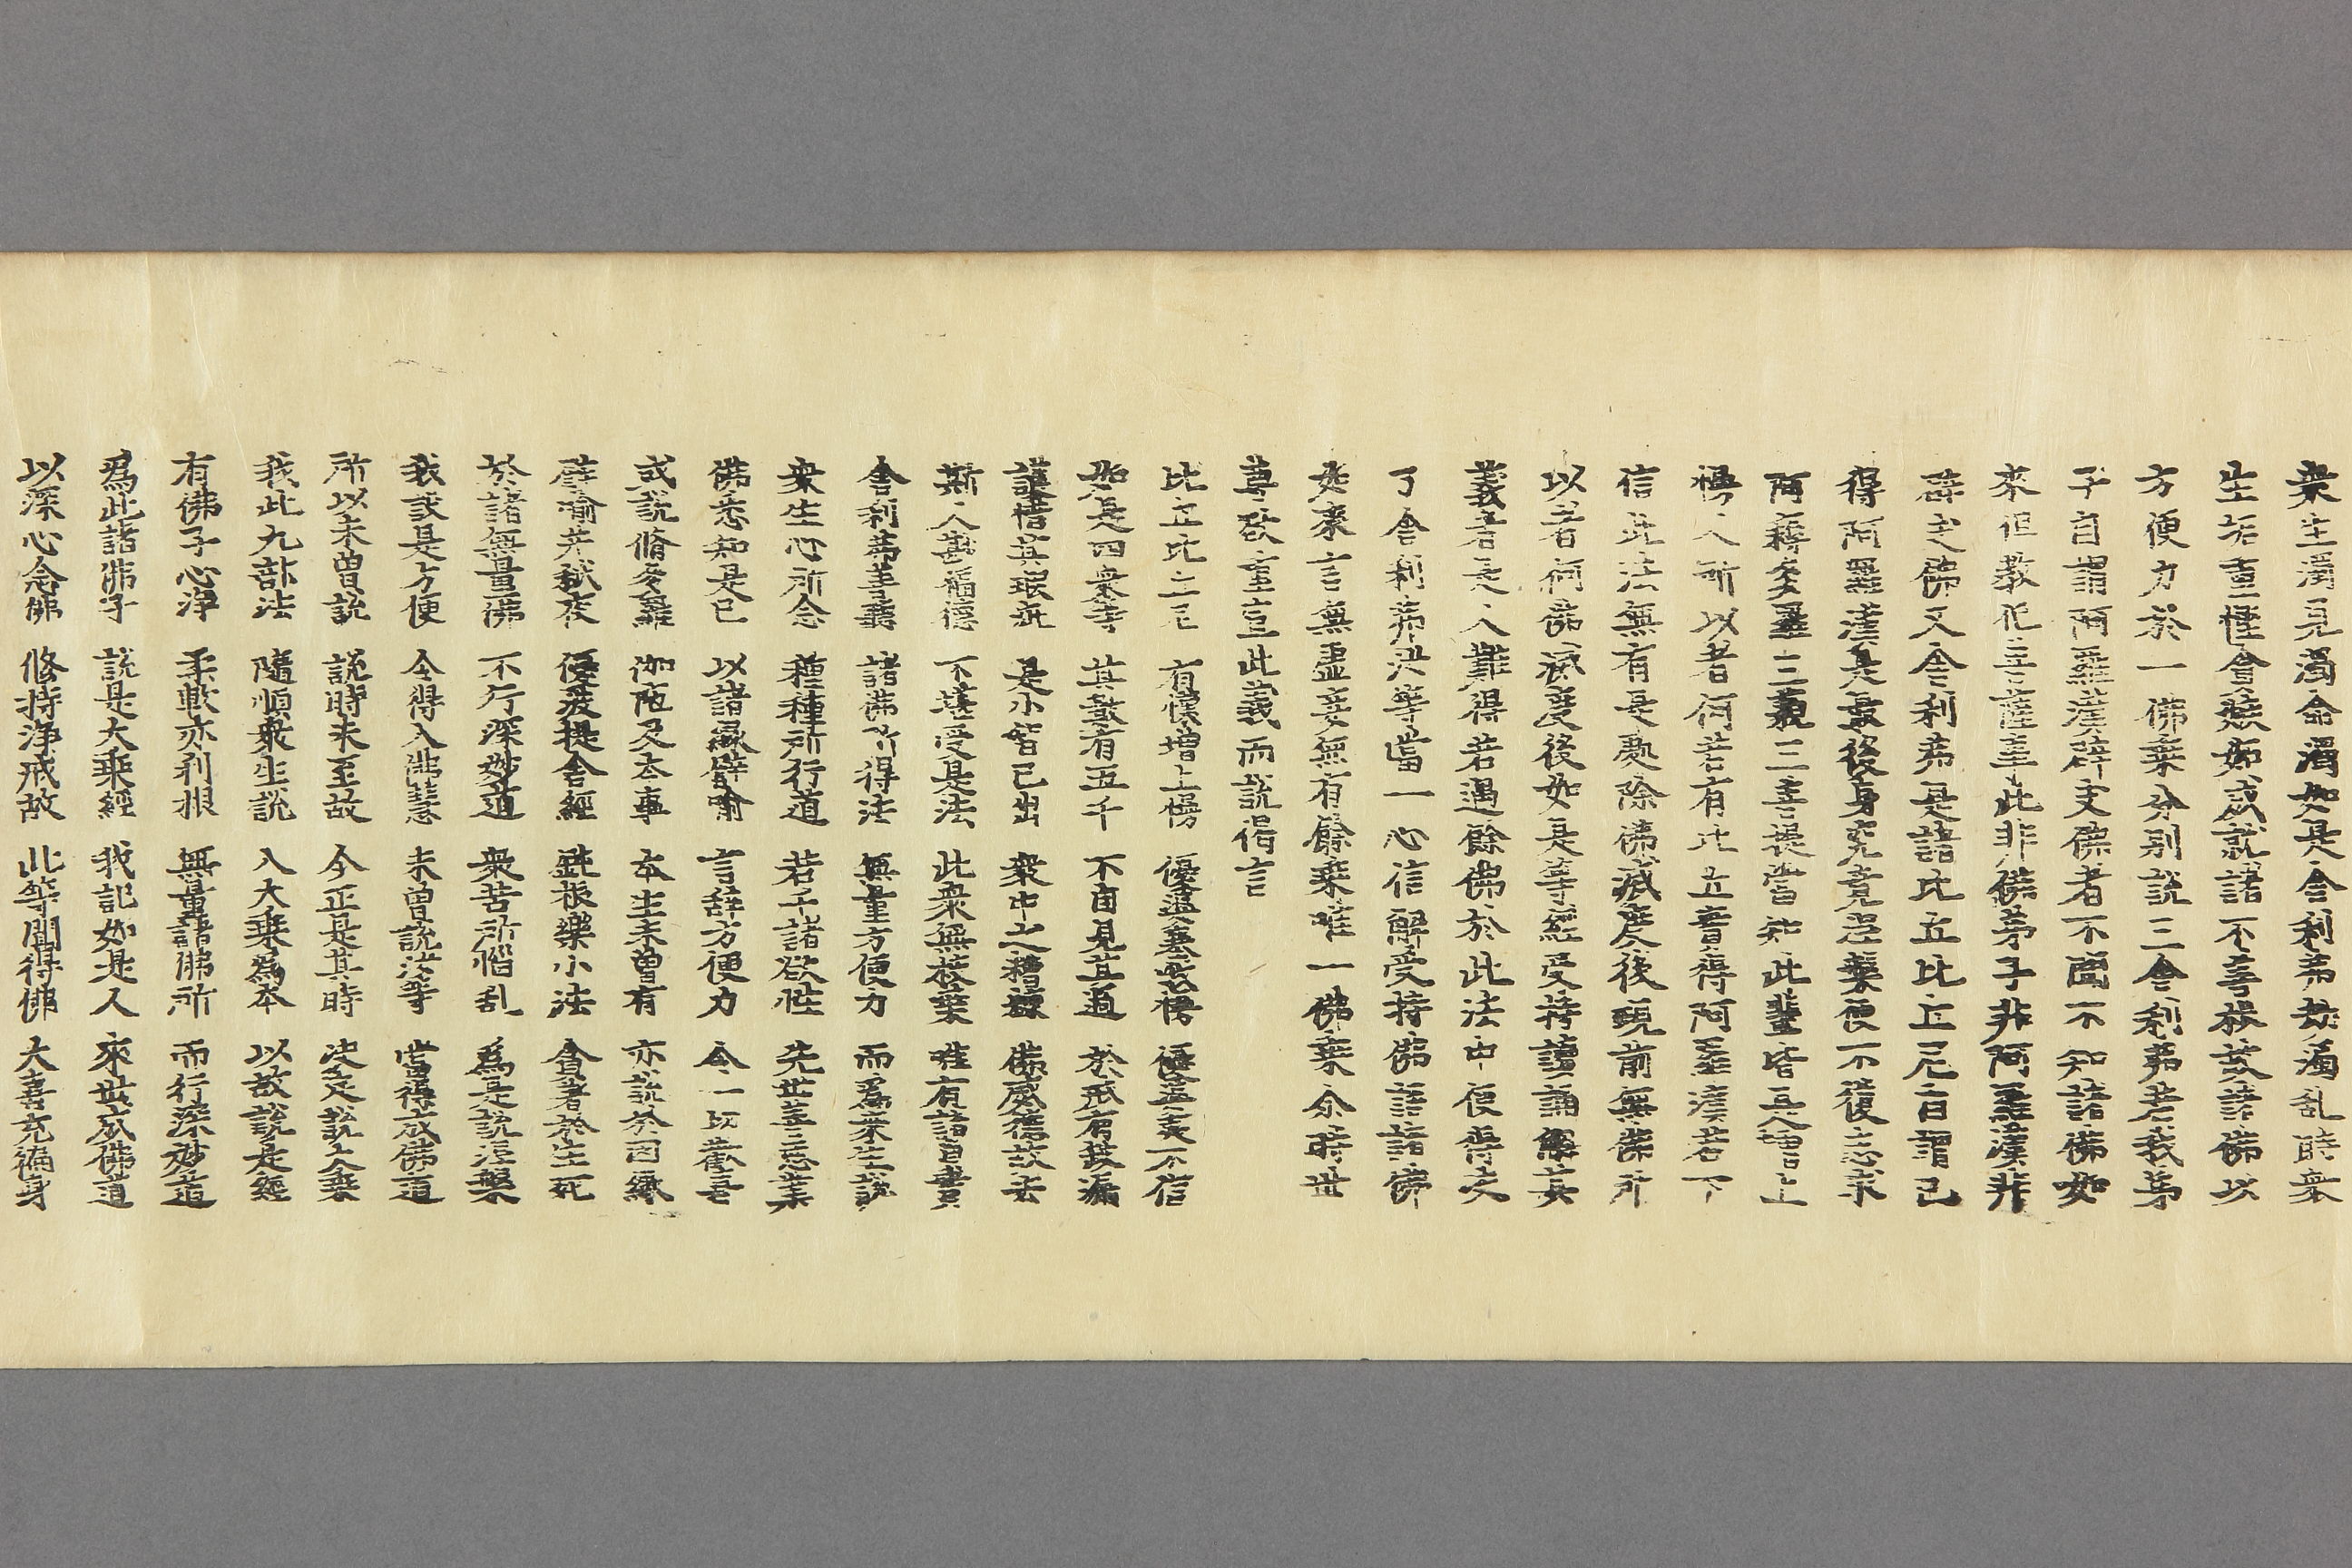 衆生濁見濁命濁如是舍利弗劫濁乱時衆
生垢重慳貪嫉妬成就諸不善根故諸佛以
方便力於一佛乗分別説三舍利弗若我弟
子自謂阿羅漢辟支佛者不聞不知諸佛如
来但教化菩薩事此非佛弟子非阿羅漢非
辟支佛又舍利弗是諸比丘比丘尼自謂已
得阿羅漢是最後身究竟涅槃便不復志求
阿耨多羅三藐三菩提當知此輩皆是増上
慢人所以者何若有比丘實得阿羅漢若不
信此法無有是處除佛滅度後現前無佛所
以者何佛滅度後如是等經受持讀誦解其
義者是人難得若遇餘佛於此法中便得决
了舍利弗汝等當一心信解受持佛語諸佛
如来言無虚妄無有餘乗唯一佛乗尒時世
尊欲重宣此義而説偈言
比丘比丘尼 有懐増上慢 優婆塞我慢 優婆夷不信
如是四衆等 其數有五千 不自見其過 於戒有缺漏
護惜其瑕疵 是小智已出 衆中之糟糠 佛威徳故去
斯人尠福徳 不堪受是法 此衆無枝葉 唯有諸貞實
舎利弗善聽 諸佛所得法 無量方便力 而爲衆生説
衆生心所念 種種所行道 若干諸欲性 先世善惡業
佛悉知是已 以諸縁譬喻 言辞方便力 令一切歡喜
或説脩多羅 伽陀及本事 本生未曾有 亦説於因縁
譬喻并祇夜 優波提舎經 鈍根樂小法 貪著於生死
於諸無量佛 不行深妙道 衆苦所惱乱 爲是説涅槃
我設是方便 令得入佛慧 未曾説汝等 當得成佛道
所以未曾説 説時未至故 今正是其時 决定説大乗
我此九部法 隨順衆生説 入大乗爲本 以故説是經
有佛子心淨 柔軟亦利根 無量諸佛所 而行深妙道
爲此諸佛子 説是大乗經 我記如是人 來世成佛道
以深心念佛 修持淨戒故 此等聞得佛 大喜充徧身